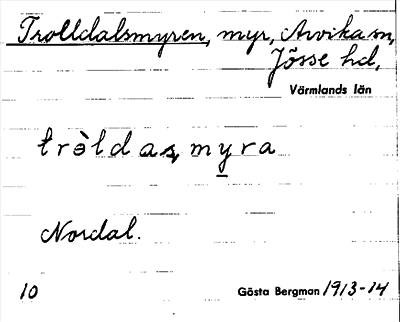 Trolldalsmyren, myr, Arvika sn,
Jösse hd,
Värmlands län
trò̀ldas,myra
Nordal.
10 Gösta Bergman 1913-14